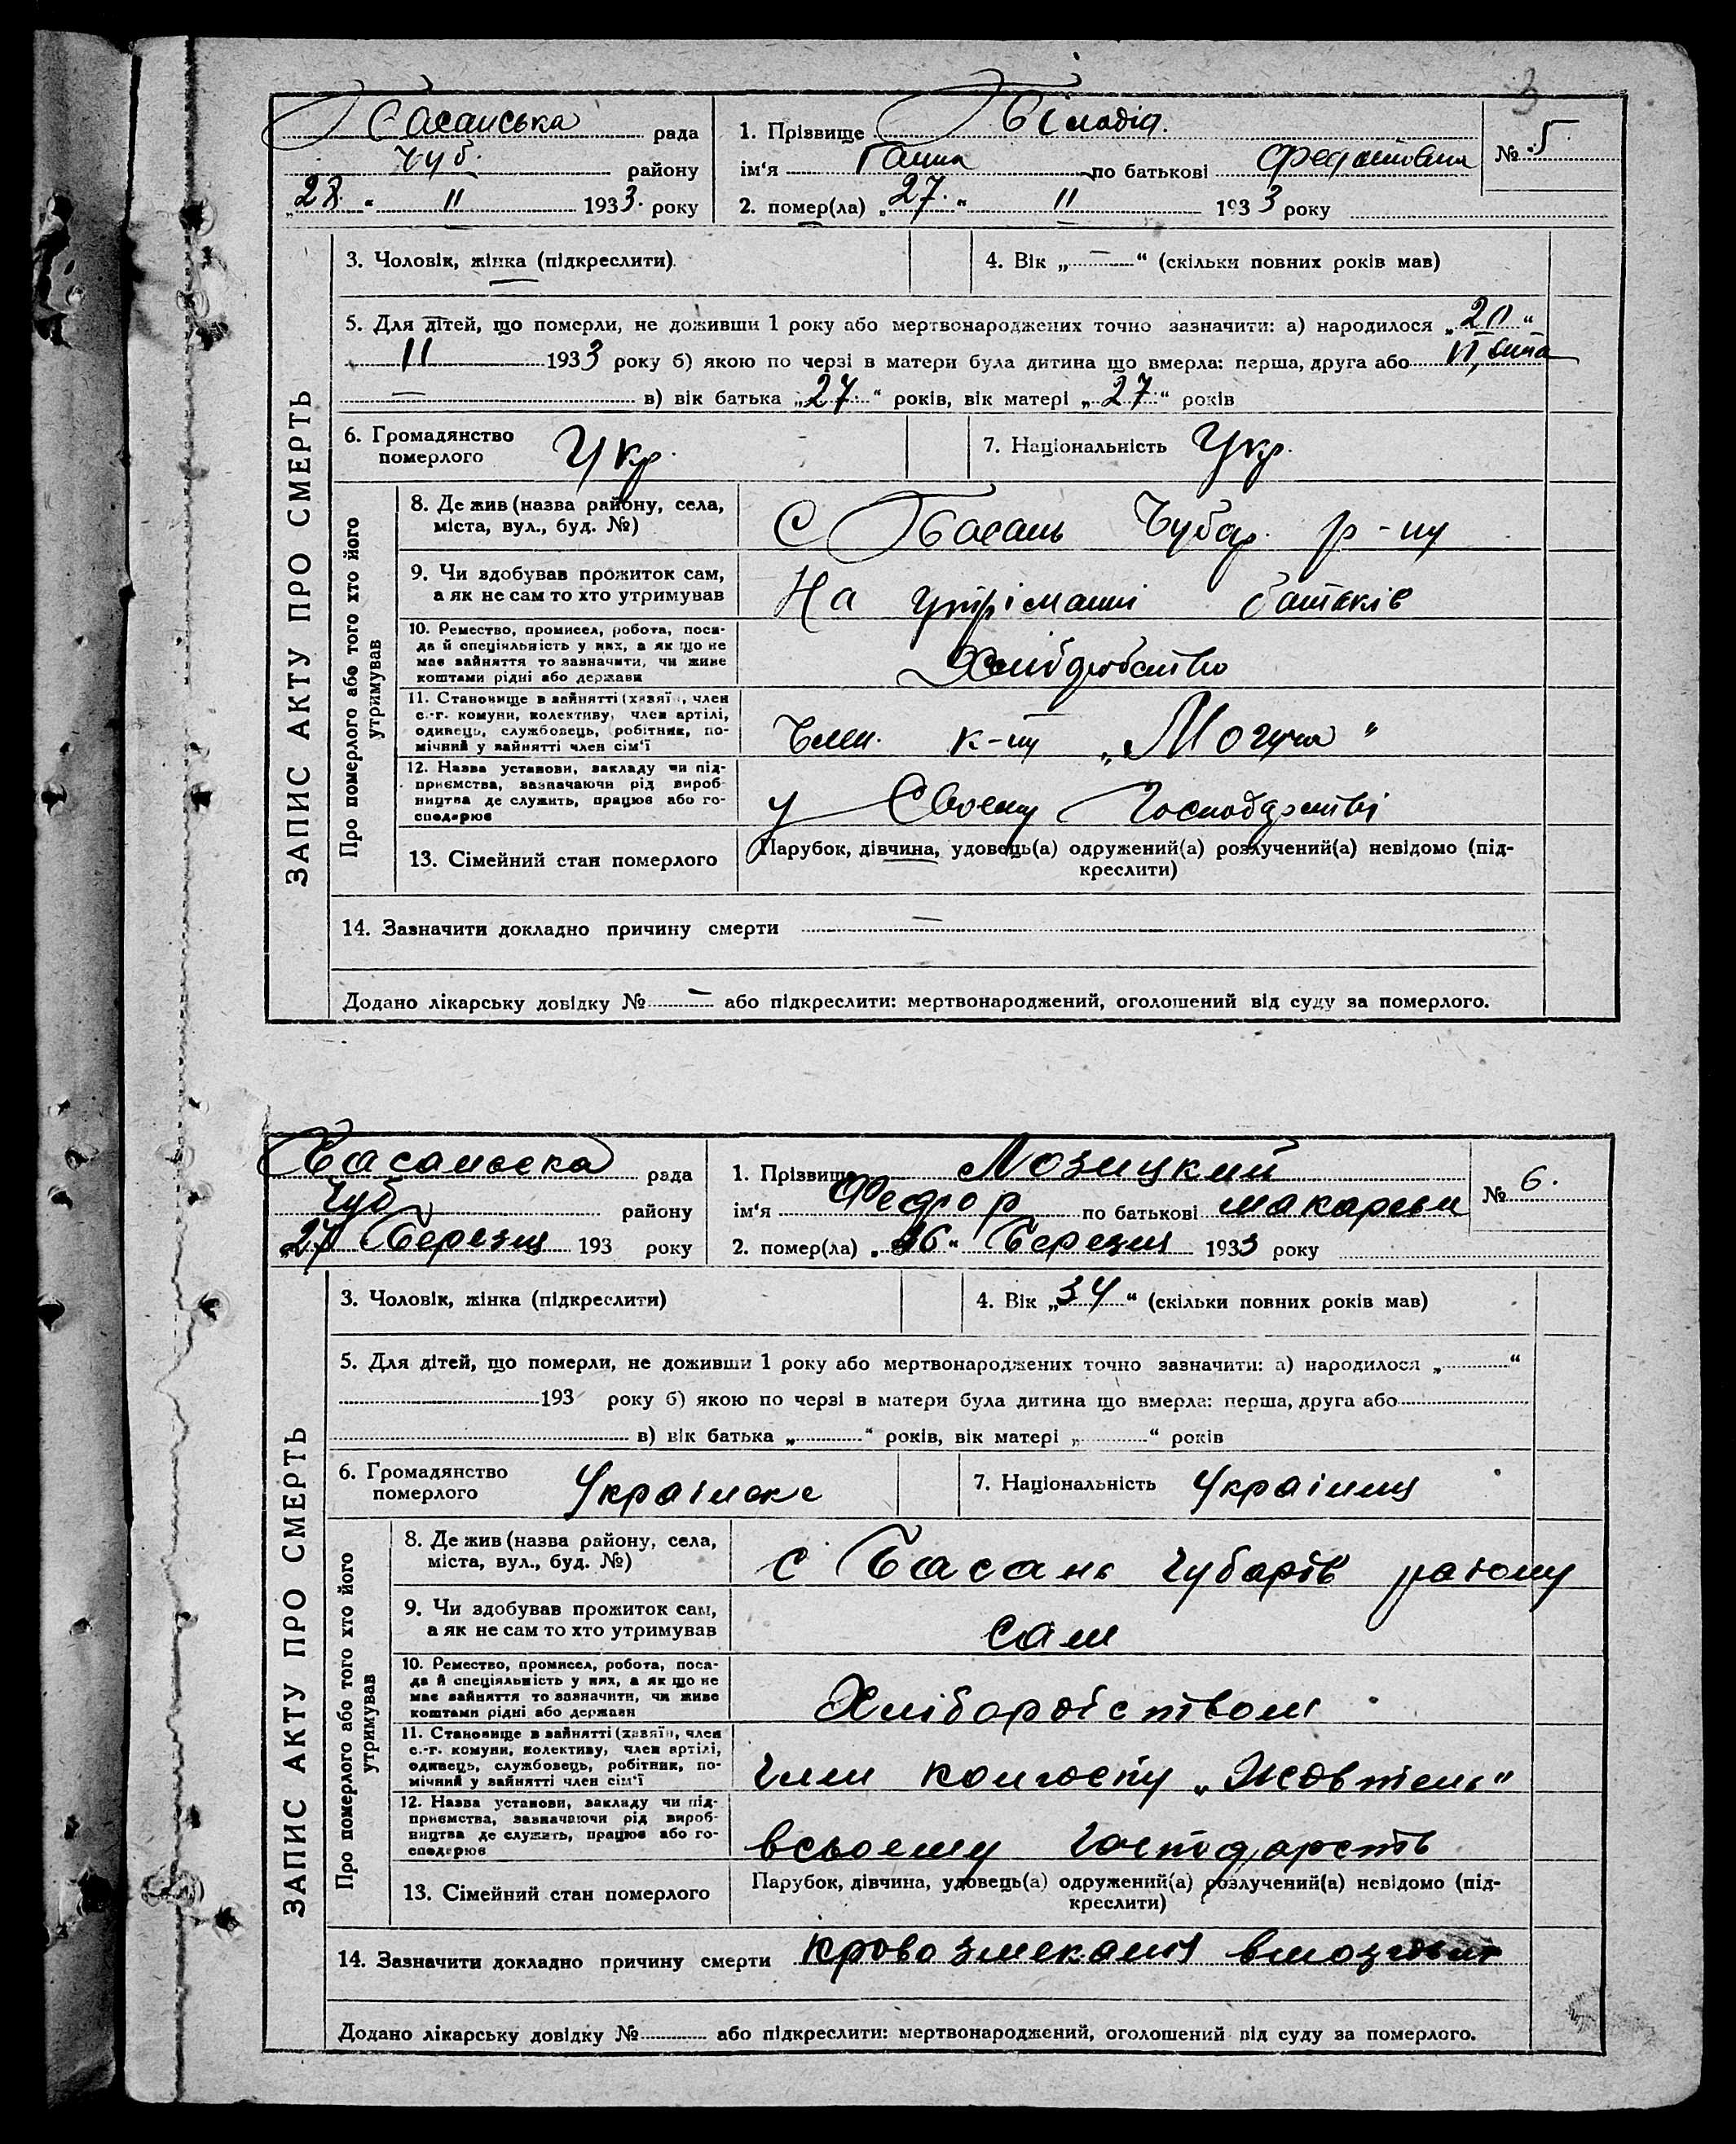 3
Басанська рада
Чуб. району
„28.“ II 1933. року
1. Прізвище Білодід.
ім‘я Ганна по батькові Федотовна
2. помер(ла) „27.“ II 1933 року
№ 5.
ЗАПИС АКТУ ПРО СМЕРТЬ
3. Чоловік, жінка (підкреслити).
4. Вік „ — “ (скільки повних років мав)
5. Для дітей, що померли, не доживши 1 року або мертвонароджених точно зазначити: а) народилося „20“
II 1933 року б) якою по черзі в матери була дитина що вмерла: перша, друга або
— в) вік батька „27.“ років, вік матері „27.“ років
6. Громадянство
померлого Укр.
7. Національність Укр.
Про померлого або того хто його
утримував
8. Де жив (назва району, села,
міста, вул., буд. №)
С Басань Чубар. р-ну
9. Чи здобував прожиток сам,
а як не сам то хто утримував
На утріманні батьків
10. Ремество, промисел, робота, поса-
да й спеціяльність у них, а як що не
має зайняття то зазначити, чи живе
коштами рідні або держави
11. Становище в зайнятті (хазяїн, член
с.-г. комуни, колективу, член артілі,
одинець, службовець, робітник, по-
мічний у зайнятті член сім‘ї
Член. к-пу „Могуча“
12. Назва установи, закладу чи під-
приємства, зазначаючи рід вироб-
ництва де служить, працює або го-
сподарює
у Своему Господарстві
13. Сімейний стан померлого
Парубок, дівчина, удовець(а) одружений(а) розлучений(а) невідомо (під-
креслити)
14. Зазначити докладно причину смерти —
Додано лікарську довідку № — або підкреслити: мертвонароджений, оголошений від суду за померлого.
Басанська рада
Чуб району
„27 Березня 193 року
1. Прізвище Лозицкий
ім‘я Федор по батькові Макарови
2. помер(ла) „26“ Березня 1933 року
№ 6.
ЗАПИС АКТУ ПРО СМЕРТЬ
3. Чоловік, жінка (підкреслити)
4. Вік „34“ (скільки повних років мав)
5. Для дітей, що померли, не доживши 1 року або мертвонароджених точно зазначити: а) народилося „ “
193 року б) якою по черзі в матери була дитина що вмерла: перша, друга або
в) вік батька „ “ років, вік матері „ “ років
6. Громадянство
померлого Украінске
7. Національність Украінец
Про померлого або того хто його
утримував
8. Де жив (назва району, села,
міста, вул., буд. №)
с Басань Чубарів району
9. Чи здобував прожиток сам,
а як не сам то хто утримував
сам
10. Ремество, промисел, робота, поса-
да й спеціяльність у них, а як що не
має зайняття то зазначити, чи живе
коштами рідні або держави
Хліборобством
11. Становище в зайнятті (хазяїн, член
с.-г. комуни, колективу, член артілі,
одинець, службовець, робітник, по-
мічний у зайнятті член сім‘ї
Член колгоспу „Жовтень“
12. Назва установи, закладу чи під-
приємства, зазначаючи рід вироб-
ництва де служить, працює або го-
сподарює
всьоему господарств
13. Сімейний стан померлого
Парубок, дівчина, удовець(а) одружений(а) розлучений(а) невідомо (під-
креслити)
14. Зазначити докладно причину смерти Крово змекания
Додано лікарську довідку № або підкреслити: мертвонароджений, оголошений від суду за померлого.